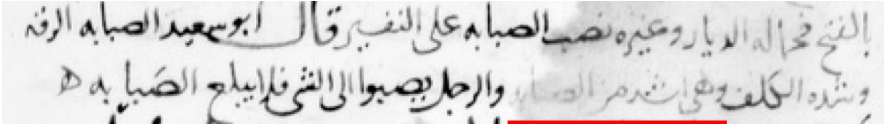 بالفتح فجمله الديار وغيره نصب الصبابه على التفسير قال ابو سعيد الصبابه الرقه
وشده الكلف وهي اشد من الصبابه والرجل يصبوا الى الشي فلا يبلغ الصبابه ه